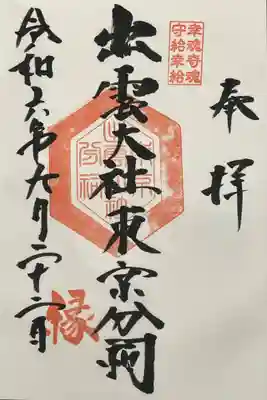 奉拝
幸魂奇魂
守給幸給
出雲大社東京分祠
縁
令和六年九月二十二日